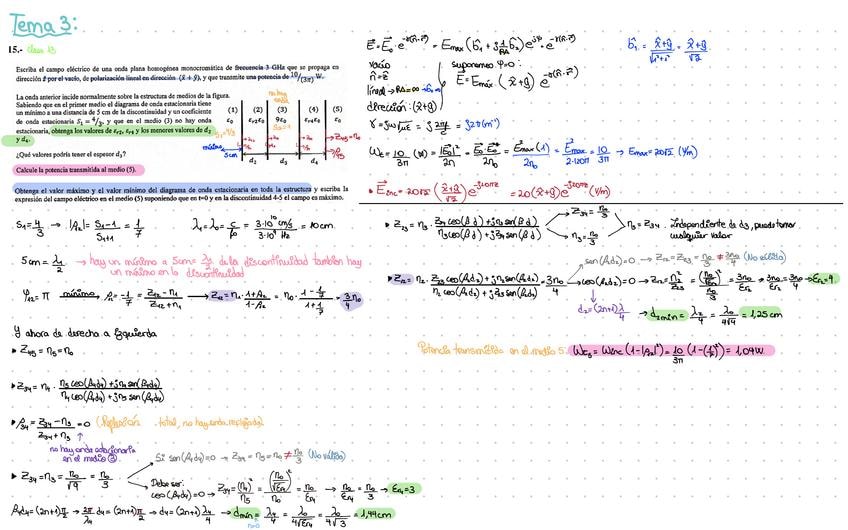 Tema 3:
15.- Clase 13
Escriba el campo eléctrico de una onda plana homogénea monocromática de frecuencia 3 GHz que se propaga en
dirección ẑ por el vacío, de polarización lineal en dirección (x̂ + ŷ), y que transmite una potencia de 10/(3π) W.
La onda anterior incide normalmente sobre la estructura de medios de la figura.
Sabiendo que en el primer medio el diagrama de onda estacionaria tiene
un mínimo a una distancia de 5 cm de la discontinuidad y un coeficiente
de onda estacionaria S₁ = 4/3, y que en el medio (3) no hay onda
estacionaria, obtenga los valores de εr2, εr4 y los menores valores de d2
y d4.
¿Qué valores podría tener el espesor d3?
Calcule la potencia transmitida al medio (5).
Obtenga el valor máximo y el valor mínimo del diagrama de onda estacionaria en toda la estructura y escriba la
expresión del campo eléctrico en el medio (5) suponiendo que en t=0 y en la discontinuidad 4-5 el campo es máximo.
no hay onda
(1) (2) (3) (4) (5)
ε0 εr2ε0 9ε0 εr4ε0 ε0
S₁=4/3
→Z45=n0
mínimo
5cm d2 d3 d4
E = E0 · e^-γ(n̂·r̄) = Emax (b̂1 + j 1/RA b̂2) e^jφ · e^-γ(n̂·r̄)
b̂1 = (x̂+ŷ)/√(1²+1²) = (x̂+ŷ)/√2
vacío
n̂=ẑ
lineal → RA=∞ → b̂1
dirección: (x̂+ŷ)
suponemos φ=0:
E = Emax · (x̂+ŷ) e^-γ(n̂·r̄)
γ = jω√με = j 2πf/c = j20π (m⁻¹)
Wt = 10/3π (W) = |E0|²/2n = E0·E0*/2n0 = Emax²(1)/2n0 = Emax²/2·120π = 10/3π → Emax = 20√2 (V/m)
• Einc = 20√2 ((x̂+ŷ)/√2) e^-j20πz = 20(x̂+ŷ)e^-j20πz (V/m)
S1 = 4/3 → |ρ2| = (S1-1)/(S1+1) = 1/7
λ1 = λ0 = c/f0 = 3·10¹⁰ cm/s / 3·10⁹ Hz = 10 cm
5cm = λ1/2 → hay un mínimo a 5cm = λ/2 de la discontinuidad también hay
un mínimo en la discontinuidad
φ12 = π mínimo, ρ2 = -1/7 = (Z12-n1)/(Z12+n1) → Z12 = n1 · (1+ρ2)/(1-ρ2) = n0 · (1-1/7)/(1+1/7) = 3n0/4
Y ahora de derecha a izquierda
▸ Z45 = n5 = n0
▸ Z34 = n4 · (n5 cos(β4d4) + jn4 sen(β4d4))/(n4 cos(β4d4) + jn5 sen(β4d4))
▸ ρ34 = (Z34-n3)/(Z34+n3) = 0 (Reflexión total, no hay onda reflejada)
no hay onda estacionaria
en el medio ③
▸ Z34 = n3 = n0/√9 = n0/3
Si sen(β4d4)=0 → Z34 = n5 = n0 ≠ n0/3 (No válido)
Debe ser:
cos(β4d4)=0 → Z34 = (n4)²/n5 = (n0/√εr4)²/n0 = n0/εr4 → n0/εr4 = n0/3 → εr4=3
β4d4 = (2n+1)π/2 → 2π/λ4 d4 = (2n+1)π/2 → d4 = (2n+1)λ4/4 → dmin = λ4/4 = λ0/4√εr4 = λ0/4√3 = 1,44cm
n=0
▸ Z23 = n3 · (Z34 cos(β d) + jn3 sen(β d))/(n3 cos(β d) + jZ34 sen(β d))
Z34 = n0/3
n3 = n0/3
n3 = Z34. Independiente de d3, puede tomar
cualquier valor
▸ Z12 = n2 · (Z23 cos(β2d2) + jn2 sen(β2d2))/(n2 cos(β2d2) + jZ23 sen(β2d2)) = 3n0/4
sen(β2d2)=0 → Z12 = Z23 = n0/3 ≠ 3n0/4 (No válido)
cos(β2d2)=0 → Z12 = n2²/Z23 = (n0/√εr2)²/(n0/3) = 3n0/εr2 → 3n0/εr2 = 3n0/4 → εr2=4
d2 = (2n+1)λ/4 → d2min = λ2/4 = λ0/4√4 = 1,25 cm
Potencia transmitida en el medio 5: Wt5 = Winc (1-|ρ2|²) = 10/3π (1-(1/7)²) = 1,04W